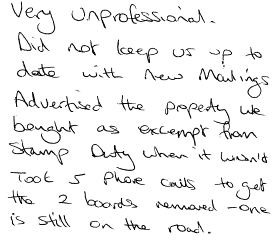 Very Unprofessional.
Did not keep us up to
date with new Mailings
Advertised the property we
bought as excempt from
Stamp Duty when it wasn't
Took 5 phone calls to get
the 2 boards removed - one
is still on the road.